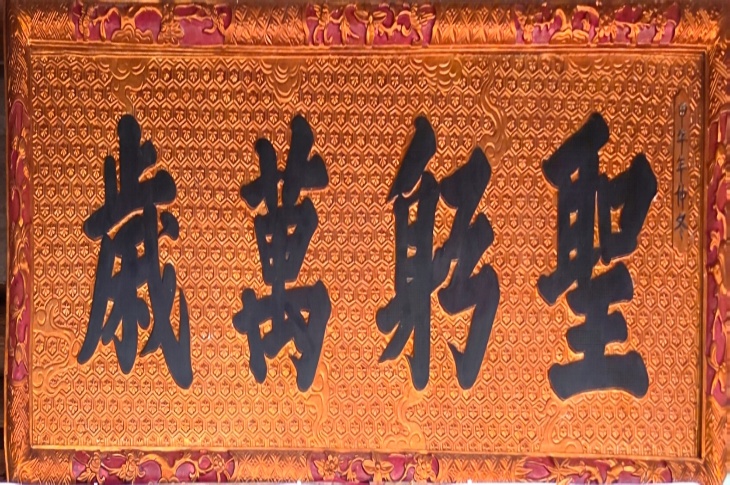 甲午年仲冬
聖躬萬歲